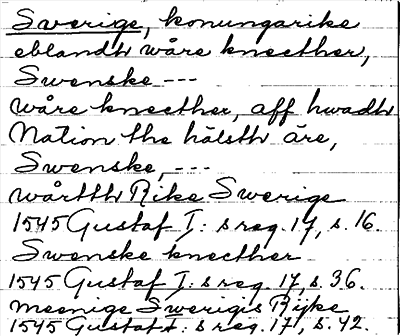 Sverige, konungarike
eblandh wåre kneether,
Swenske ---
wåre kneether, aff hwadh
Nation the hälsth äre,
Swenske, ---
wårtth Rike Swerige
1545 Gustaf I: s reg. 17, s. 16.
Swenske knecther
1545 Gustaf I: s reg. 17, s. 36.
meenige Swerigis Rijke
1545 Gustaf I: s reg. 17, s. 42.